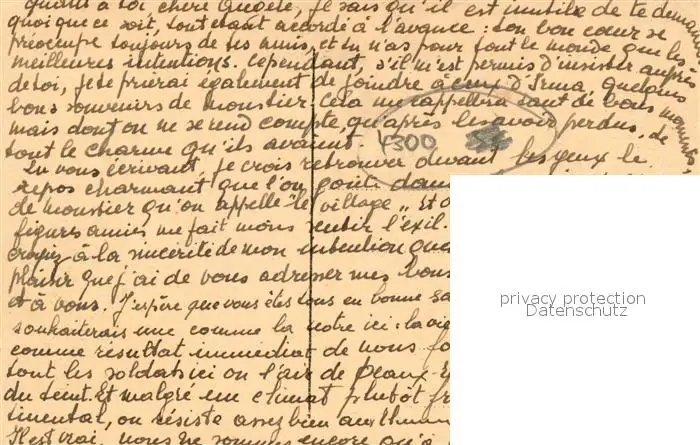 quant à toi chère Angèle, je sais qu'il est inutile de te demander
quoique ce soit, tout étant accordé à l'avance : ton bon cœur se
préoccupe toujours de tes amis, et tu n'as pour tout le monde que les
meilleures intentions. Cependant, s'il m'est permis d'insister auprès
de toi, je te prierai également de joindre à ceux d'Irma, quelques
bons souvenirs de moustier. Cela me rappellera tant de bons moments,
mais dont on ne se rend compte, qu'après les avoir perdus, de
tout le charme qu'ils avaient.
4300
En vous écrivant, je crois retrouver devant les yeux le
repos charmant que l'on goûte dans
de moustier qu'on appelle "le village". Et
figures amies me fait moins sentir l'exil.
croyez à la sincérité de mon intention
plaisir que j'ai de vous adresser mes bons
et à vous. J'espère que vous êtes tous en bonne
souhaiterais une comme la notre ici : la vie
comme résultat immédiat de nous
tout les soldats ici on l'air de
du teint. Et malgré un climat plutôt
on résiste assez bien aux
Il est vrai, nous ne sommes encore qu'à
privacy protection
Datenschutz